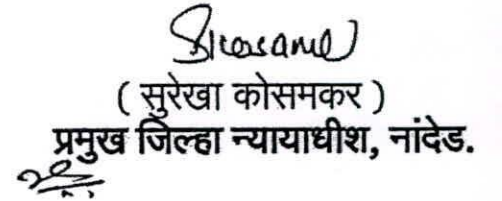 ( सुरेखा कोसमकर )
प्रमुख जिल्हा न्यायाधीश, नांदेड.